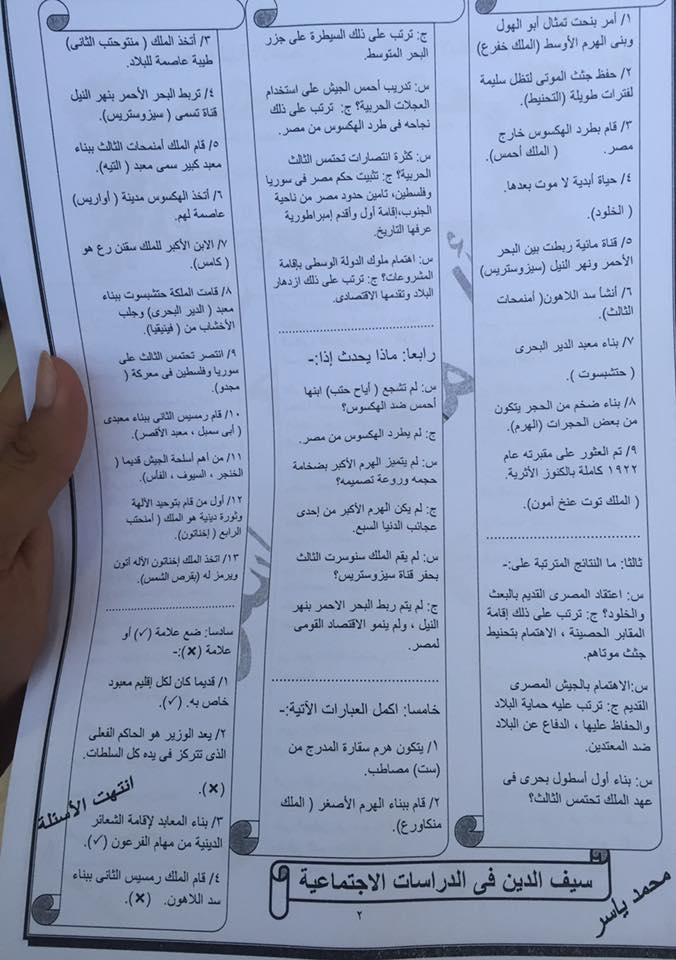 ١/ أمر بنحت تمثال أبو الهول
وبنى الهرم الأوسط (الملك خفرع)
٢/ حفظ جثث الموتى لتظل سليمة
لفترات طويلة (التحنيط).
٣/ قام بطرد الهكسوس خارج
مصر. ( الملك أحمس).
٤/ حياة أبدية لا موت بعدها.
( الخلود).
٥/ قناة مائية ربطت بين البحر
الأحمر ونهر النيل (سيزوستريس)
٦/ أنشأ سد اللاهون( أمنمحات
الثالث).
٧/ بناء معبد الدير البحرى
( حتشبسوت ).
٨/ بناء ضخم من الحجر يتكون
من بعض الحجرات (الهرم).
٩/ تم العثور على مقبرته عام
١٩٢٢ كاملة بالكنوز الأثرية.
( الملك توت عنخ آمون).
ثالثا: ما النتائج المترتبة على:-
س: اعتقاد المصرى القديم بالبعث
والخلود؟ ج: ترتب على ذلك إقامة
المقابر الحصينة ، الاهتمام بتحنيط
جثث موتاهم.
س:الاهتمام بالجيش المصرى
القديم ج: ترتب عليه حماية البلاد
والحفاظ عليها ، الدفاع عن البلاد
ضد المعتدين.
س: بناء أول أسطول بحرى فى
عهد الملك تحتمس الثالث؟
ج: ترتب على ذلك السيطرة على جزر
البحر المتوسط.
س: تدريب أحمس الجيش على استخدام
العجلات الحربية؟ ج: ترتب على ذلك
نجاحه فى طرد الهكسوس من مصر.
س: كثرة انتصارات تحتمس الثالث
الحربية؟ ج: تثبيت حكم مصر فى سوريا
وفلسطين، تامين حدود مصر من ناحية
الجنوب،إقامة أول وأقدم إمبراطورية
عرفها التاريخ.
س: اهتمام ملوك الدولة الوسطى بإقامة
المشروعات؟ ج: ترتب على ذلك ازدهار
البلاد وتقدمها الاقتصادى.
رابعا: ماذا يحدث إذا:-
س: لم تشجع ( أياح حتب) ابنها
أحمس ضد الهكسوس؟
ج: لم يطرد الهكسوس من مصر.
س: لم يتميز الهرم الأكبر بضخامة
حجمه وروعة تصميمه؟
ج: لم يكن الهرم الأكبر من إحدى
عجائب الدنيا السبع.
س: لم يقم الملك سنوسرت الثالث
بحفر قناة سيزوستريس؟
ج: لم يتم ربط البحر الاحمر بنهر
النيل ، ولم ينمو الاقتصاد القومى
لمصر.
خامسا: اكمل العبارات الآتية:-
١/ يتكون هرم سقارة المدرج من
(ست) مصاطب.
٢/ قام ببناء الهرم الأصغر ( الملك
منكاورع).
٣/ أتخذ الملك ( منتوحتب الثانى)
طيبة عاصمة للبلاد.
٤/ تربط البحر الأحمر بنهر النيل
قناة تسمى ( سيزوستريس).
٥/ قام الملك أمنمحات الثالث ببناء
معبد كبير سمى معبد ( التيه).
٦/ أتخذ الهكسوس مدينة ( أواريس)
عاصمة لهم.
٧/ الابن الأكبر للملك سقنن رع هو
( كامس).
٨/ قامت الملكة حتشبسوت ببناء
معبد ( الدير البحرى) وجلب
الأخشاب من ( فينيقيا).
٩/ انتصر تحتمس الثالث على
سوريا وفلسطين فى معركة (
مجدو).
١٠/ قام رمسيس الثانى ببناء معبدى
( أبى سمبل ، معبد الأقصر).
١١/ من أهم أسلحة الجيش قديما (
الخنجر ، السيوف ، الفأس).
١٢/ أول من قام بتوحيد الآلهة
وثورة دينية هو الملك ( أمنحتب
الرابع ( إخناتون).
١٣/ اتخذ الملك إخناتون الآله آتون
ويرمز له (بقرص الشمس).
سادسا: ضع علامة (✓) أو
علامة (✗):-
١/ قديما كان لكل إقليم معبود
خاص به. (✓).
٢/ يعد الوزير هو الحاكم الفعلى
الذى تتركز فى يده كل السلطات.
(✗).
٣/ بناء المعابد لإقامة الشعائر
الدينية من مهام الفرعون (✓).
٤/ قام الملك رمسيس الثانى ببناء
سد اللاهون. (✗).
انتهت الأسئلة
سيف الدين فى الدراسات الاجتماعية
٢
محمد ياسر